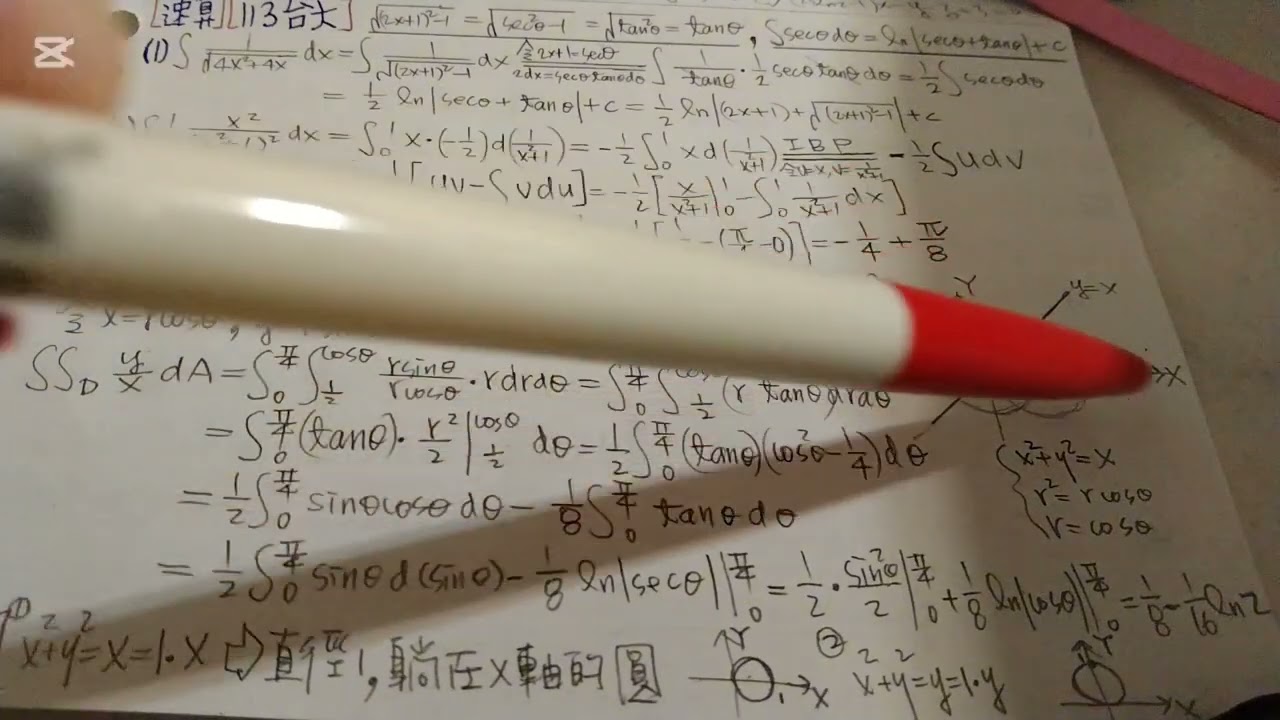 [速算][113台大] √((2x+1)²-1) = √(sec²θ-1) = √(tan²θ) = tanθ, ∫secθdθ = ln|secθ+tanθ|+c
(1) ∫ 1/√(4x²+4x) dx = ∫ 1/√((2x+1)²-1) dx 令2x+1=secθ 2dx=secθtanθdθ ∫ 1/tanθ · 1/2 secθtanθdθ = 1/2 ∫secθdθ
= 1/2 ln|secθ+tanθ|+c = 1/2 ln|(2x+1)+√((2x+1)²-1)|+c
x² dx = ∫₀¹ x·(-1/2)d(1/(x²+1)) = -1/2 ∫₀¹ xd(1/(x²+1)) IBP 令u=x, v=1/(x²+1) -1/2 ∫udv
[uv-∫vdu] = -1/2 [x/(x²+1)|₀¹ - ∫₀¹ 1/(x²+1) dx]
-0)] = -1/4 + π/8
Y
y=x
X
∫∫_D y/x dA = ∫₀^(π/4) ∫_(1/2)^(cosθ) rsinθ/rcosθ · rdrdθ = ∫₀^(π/4) ∫_(1/2) (r tanθ)drdθ
= ∫₀^(π/4) (tanθ)· r²/2 |_(1/2)^(cosθ) dθ = 1/2 ∫₀^(π/4) (tanθ)(cos²θ-1/4)dθ
x²+y²=x
r²=rcosθ
r=cosθ
= 1/2 ∫₀^(π/4) sinθcosθdθ - 1/8 ∫₀^(π/4) tanθdθ
= 1/2 ∫₀^(π/4) sinθd(sinθ) - 1/8 ln|secθ||₀^(π/4) = 1/2 · sin²θ/2 |₀^(π/4) + 1/8 ln|cosθ||₀^(π/4) = 1/8 - 1/16 ln2
① x²+y²=x=1·x ⇨ 直徑1,躺在x軸的圓 Y 1 X ② x²+y²=y=1·y Y X